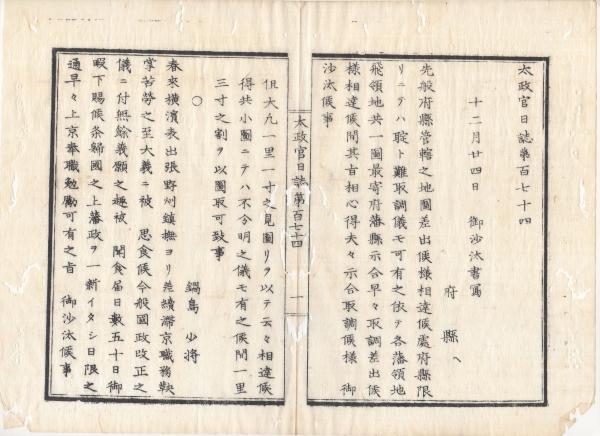 太政官日誌第百七十四
十二月廿四日 御沙汰書寫
府縣ヘ
先般府縣管轄之地圖差出候樣相達候處府縣限
リニテハ聢ト難取調儀モ可有之依テ各藩領地
飛領地共一圖最寄府藩縣示合早々取調差出候
樣相達候間其旨相心得夫々示合取調候樣 御
沙汰候事
太政官日誌第百七十四 一
但大凢一里一寸之見圖リヲ以テ云々相達候
得共小圖ニテハ不分明之儀モ有之候間一里
三寸之割ヲ以圖取可致事
○
鍋島 少將
春來横濱表出張野州鎭撫ヨリ差續滯京職務鞅
掌苦勞之至大義ニ被 思食候今般國政改正之
儀ニ付無餘義願之趣被 聞食届日數五十日御
暇下賜候条歸國之上藩政ヲ一新イタシ日限之
通早々上京奉職勉勵可有之旨 御沙汰候事